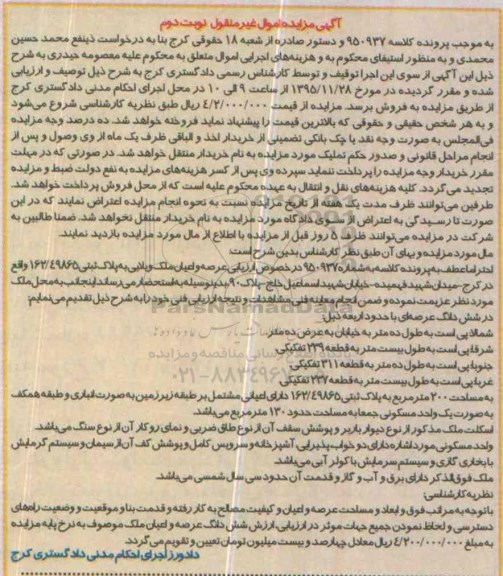 آگهی مزایده اموال غیر منقول نوبت دوم
به موجب پرونده کلاسه ۹۵۰۹۳۷ و دستور صادره از شعبه ۱۸ حقوقی کرج بنا به درخواست ذینفع محمد حسین
محمدی و به منظور استیفای محکوم به و هزینه‌های اجرایی اموال متعلق به محکوم علیه معصومه حیدری به شرح
ذیل این آگهی از سوی این اجرا توقیف و توسط کارشناس رسمی دادگستری کرج به شرح ذیل توصیف و ارزیابی
شده و مقرر گردیده در مورخ ۱۳۹۵/۱۱/۲۸ از ساعت ۹ الی ۱۰ در محل اجرای احکام مدنی دادگستری کرج
از طریق مزایده به فروش برسد. مزایده از قیمت ۴/۲۰۰/۰۰۰/۰۰۰ ریال طبق نظریه کارشناسی شروع می‌شود
و به هر شخص حقیقی و حقوقی که بالاترین قیمت را پیشنهاد نماید فروخته خواهد شد. ده درصد وجه مزایده
فی‌المجلس به صورت وجه نقد یا چک بانکی تضمینی از خریدار اخذ و الباقی ظرف یک ماه از وی وصول و پس از
انجام مراحل قانونی و صدور حکم تملیک مورد مزایده به نام خریدار منتقل خواهد شد. در صورتی که در مهلت
مقرر خریدار وجه مزایده را پرداخت ننماید سپرده وی پس از کسر هزینه‌های مزایده به نفع دولت ضبط و مزایده
تجدید می گردد. کلیه هزینه‌های نقل و انتقال به عهده محکوم علیه است که از محل فروش پرداخت خواهد شد.
طرفین می‌توانند ظرف مدت یک هفته از تاریخ مزایده نسبت به نحوه انجام مزایده اعتراض نمایند که در این
صورت تا رسیدگی به اعتراض از سوی دادگاه مورد مزایده به نام خریدار منتقل نخواهد شد. ضمنا طالبین به
شرکت در مزایده می‌توانند ظرف ۵ روز قبل از مزایده با اطلاع از مال مورد مزایده بازدید نمایند.
مال مورد مزایده و بهای آن طبق نظر کارشناس بدین شرح است:
احتراما عطف به پرونده کلاسه به شماره ۹۵۰۹۳۷ در خصوص ارزیابی عرصه و اعیان ملک ویلایی به پلاک ثبتی ۱۶۲/۴۹۸۶۵ واقع
در کرج- میدان شهید فهمیده- خیابان شهید اسماعیل خلج- پلاک ۹۰ بدینوسیله به استحضار می‌رساند اینجانب به محل ملک
مورد نظر عزیمت نموده و ضمن انجام معاینه فنی مشاهدات و نتیجه ارزیابی فنی خود را به شرح ذیل تقدیم می‌نمایم:
در شش دانگ عرصه‌ای با حدود اربعه ذیل:
شمالا پی است به طول ده متر به خیابان به عرض ده متر.
شرقا پی است به طول بیست متر به قطعه ۲۳۹ تفکیکی.
جنوبا پی است به طول ده متر به قطعه ۳۱۱ تفکیکی.
غربا پی است به طول بیست متر به قطعه ۲۳۷ تفکیکی.
به مساحت ۲۰۰ متر مربع به پلاک ثبتی ۱۶۲/۴۹۸۶۵ دارای اعیانی مشتمل بر طبقه زیرزمین به صورت انباری و طبقه همکف
به صورت یک واحد مسکونی جمعا به مساحت حدود ۱۳۰ متر مربع می‌باشد.
اسکلت ملک مذکور از نوع دیوار باربر و پوشش سقف آن از نوع طاق ضربی و نمای رو کار آن از نوع سنگ می‌باشد.
واحد مسکونی مورد اشاره دارای دو خواب، پذیرایی، آشپزخانه و سرویس کامل و پوشش کف آن از سیمان و سیستم گرمایش
با بخاری گازی و سیستم سرمایش با کولر آبی می‌باشد.
ملک فوق‌الذکر دارای برق و آب و گاز و قدمت آن حدود سی سال شمسی می‌باشد.
نظریه کارشناسی:
با توجه به مراتب فوق و ابعاد و مساحت عرصه و اعیان و کیفیت مصالح به کار رفته و قدمت بنا و موقعیت و وضعیت راه‌های
دسترسی و لحاظ نمودن جمیع جهات موثر در ارزیابی، ارزش شش دانگ عرصه و اعیان ملک موصوف به نرخ پایه مزایده
به مبلغ ۴/۲۰۰/۰۰۰/۰۰۰ ریال معادل چهارصد و بیست میلیون تومان تعیین و تقویم می‌گردد.
دادورز اجرای احکام مدنی دادگستری کرج
ParsNamadData
پایگاه اطلاع رسانی مناقصه و مزایده